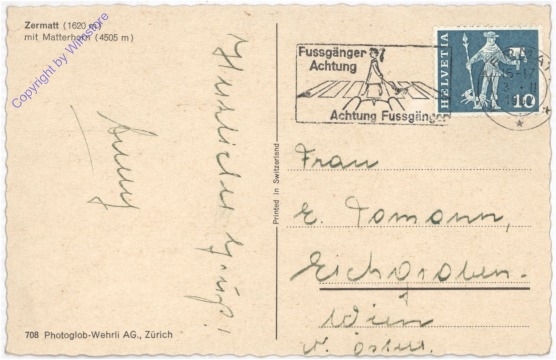 Zermatt (1620 m)
mit Matterhorn (4505 m)
Copyright by Winstore
Herzlichen Gruß!
708 Photoglob-Wehrli AG., Zürich
Printed in Switzerland
Fussgänger
Achtung
Achtung Fussgänger
HELVETIA
10
Frau
E. Tomann,
Eichgraben-
Wien